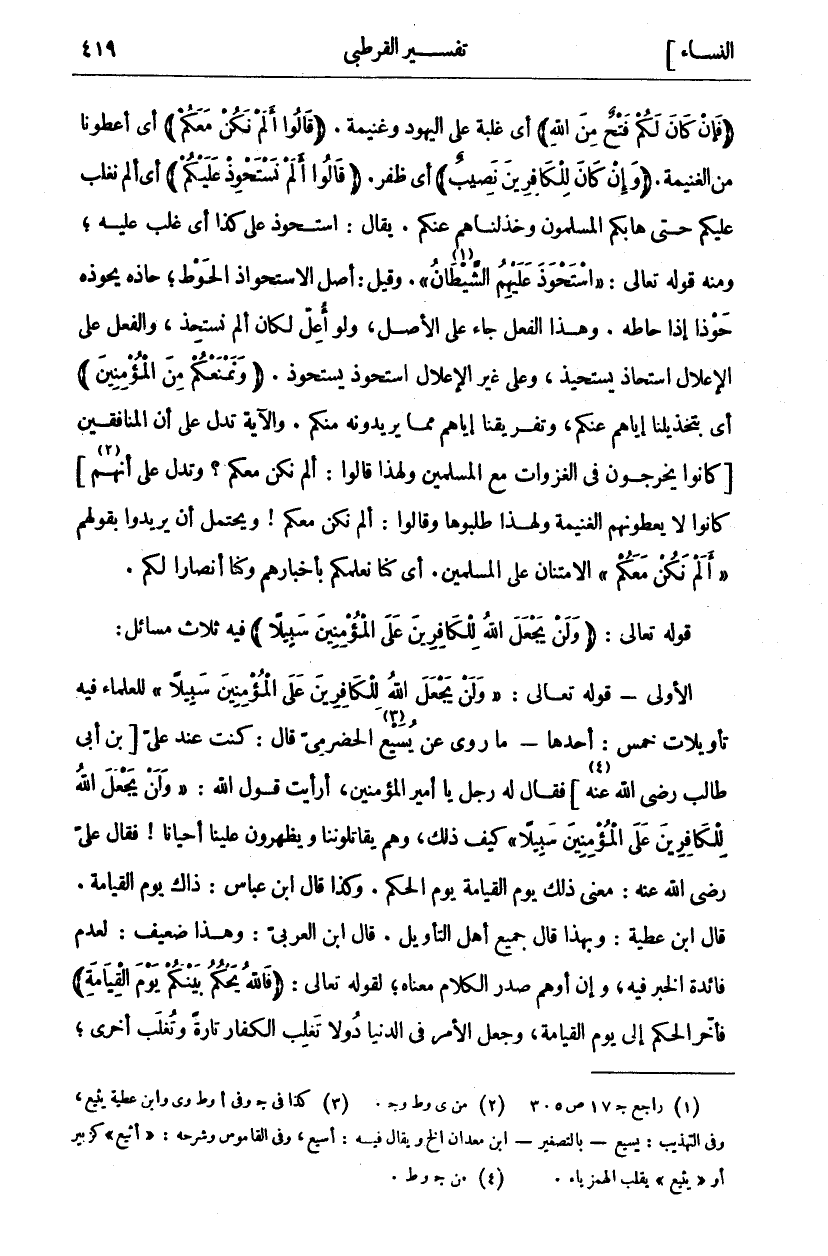 النساء ] تفسير القرطبى ٤١٩
﴿فَإِنْ كَانَ لَكُمْ فَتْحٌ مِنَ اللهِ﴾ أى غلبة على اليهود وغنيمة . ﴿قَالُوا أَلَمْ نَكُنْ مَعَكُمْ﴾ أى أعطونا
من الغنيمة . ﴿وَإِنْ كَانَ لِلْكَافِرِينَ نَصِيبٌ﴾ أى ظفر . ﴿قَالُوا أَلَمْ نَسْتَحْوِذْ عَلَيْكُمْ﴾ أى ألم نغلب
عليكم حتى هابكم المسلمون وخذلناهم عنكم . يقال : استحوذ على كذا أى غلب عليه ؛
ومنه قوله تعالى : «اسْتَحْوَذَ عَلَيْهِمُ الشَّيْطَانُ(١)» . وقيل : أصل الاستحواذ الحَوْط ؛ حاذه يحوذه
حَوْذا إذا حاطه . وهذا الفعل جاء على الأصل، ولو أُعِلّ لكان ألم نستحِذ ، والفعل على
الإعلال استحاذ يستحيذ ، وعلى غير الإعلال استحوذ يستحوذ . ﴿وَنَمْنَعْكُمْ مِنَ الْمُؤْمِنِينَ﴾
أى بتخذيلنا إياهم عنكم، وتفريقنا إياهم مما يريدونه منكم . والآية تدل على أن المنافقين
[كانوا يخرجون فى الغزوات مع المسلمين ولهذا قالوا : ألم نكن معكم ؟ وتدل على أنهم(٢) ]
كانوا لا يعطونهم الغنيمة ولهذا طلبوها وقالوا : ألم نكن معكم ! ويحتمل أن يريدوا بقولهم
« أَلَمْ نَكُنْ مَعَكُمْ » الامتنان على المسلمين . أى كنا نعلمكم بأخبارهم وكنا أنصارا لكم .
قوله تعالى : ﴿وَلَنْ يَجْعَلَ اللهُ لِلْكَافِرِينَ عَلَى الْمُؤْمِنِينَ سَبِيلًا﴾ فيه ثلاث مسائل :
الأولى — قوله تعالى : « وَلَنْ يَجْعَلَ اللهُ لِلْكَافِرِينَ عَلَى الْمُؤْمِنِينَ سَبِيلًا » للعلماء فيه
تأويلات خمس : أحدها — ما روى عن يُسَيْع(٣) الحضرمىّ قال : كنت عند علىّ [ بن أبى
طالب رضى الله عنه(٤) ] فقال له رجل يا أمير المؤمنين، أرأيت قول الله : « وَلَنْ يَجْعَلَ اللهُ
لِلْكَافِرِينَ عَلَى الْمُؤْمِنِينَ سَبِيلًا» كيف ذلك، وهم يقاتلوننا ويظهرون علينا أحيانا ! فقال علىّ
رضى الله عنه : معنى ذلك يوم القيامة يوم الحكم . وكذا قال ابن عباس : ذاك يوم القيامة .
قال ابن عطية : وبهذا قال جميع أهل التأويل . قال ابن العربىّ : وهذا ضعيف : لعدم
فائدة الخبر فيه، وإن أوهم صدر الكلام معناه ؛ لقوله تعالى : ﴿فَاللهُ يَحْكُمُ بَيْنَكُمْ يَوْمَ الْقِيَامَةِ﴾
فأخّر الحكم إلى يوم القيامة، وجعل الأمر فى الدنيا دُولا تَغلِب الكفار تارةً وتُغلَب أخرى ؛
(١) راجع جـ ١٧ ص ٣٠٥ (٢) من ى وط وجـ . (٣) كذا فى جـ وفى أ وط وى وابن عطية يثيع ،
وفى التهذيب : يسيع — بالتصغير — ابن معدان الخ ويقال فيه : أسيع ، وفى القاموس وشرحه : « أثيع » كزبير
أو « يثيع » بقلب الهمز ياء . (٤) من جـ وط .